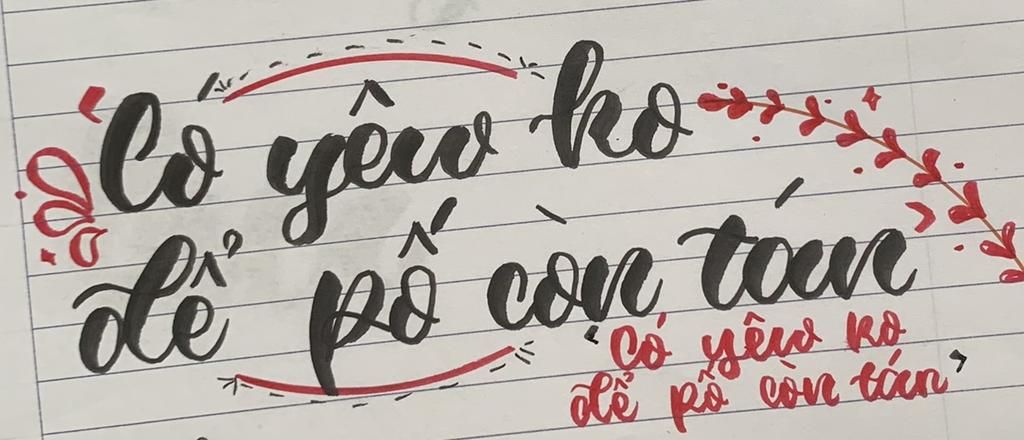 ‘Có yêw ko
để pố còn tán’
‘Có yêw ko
để pố còn tán’